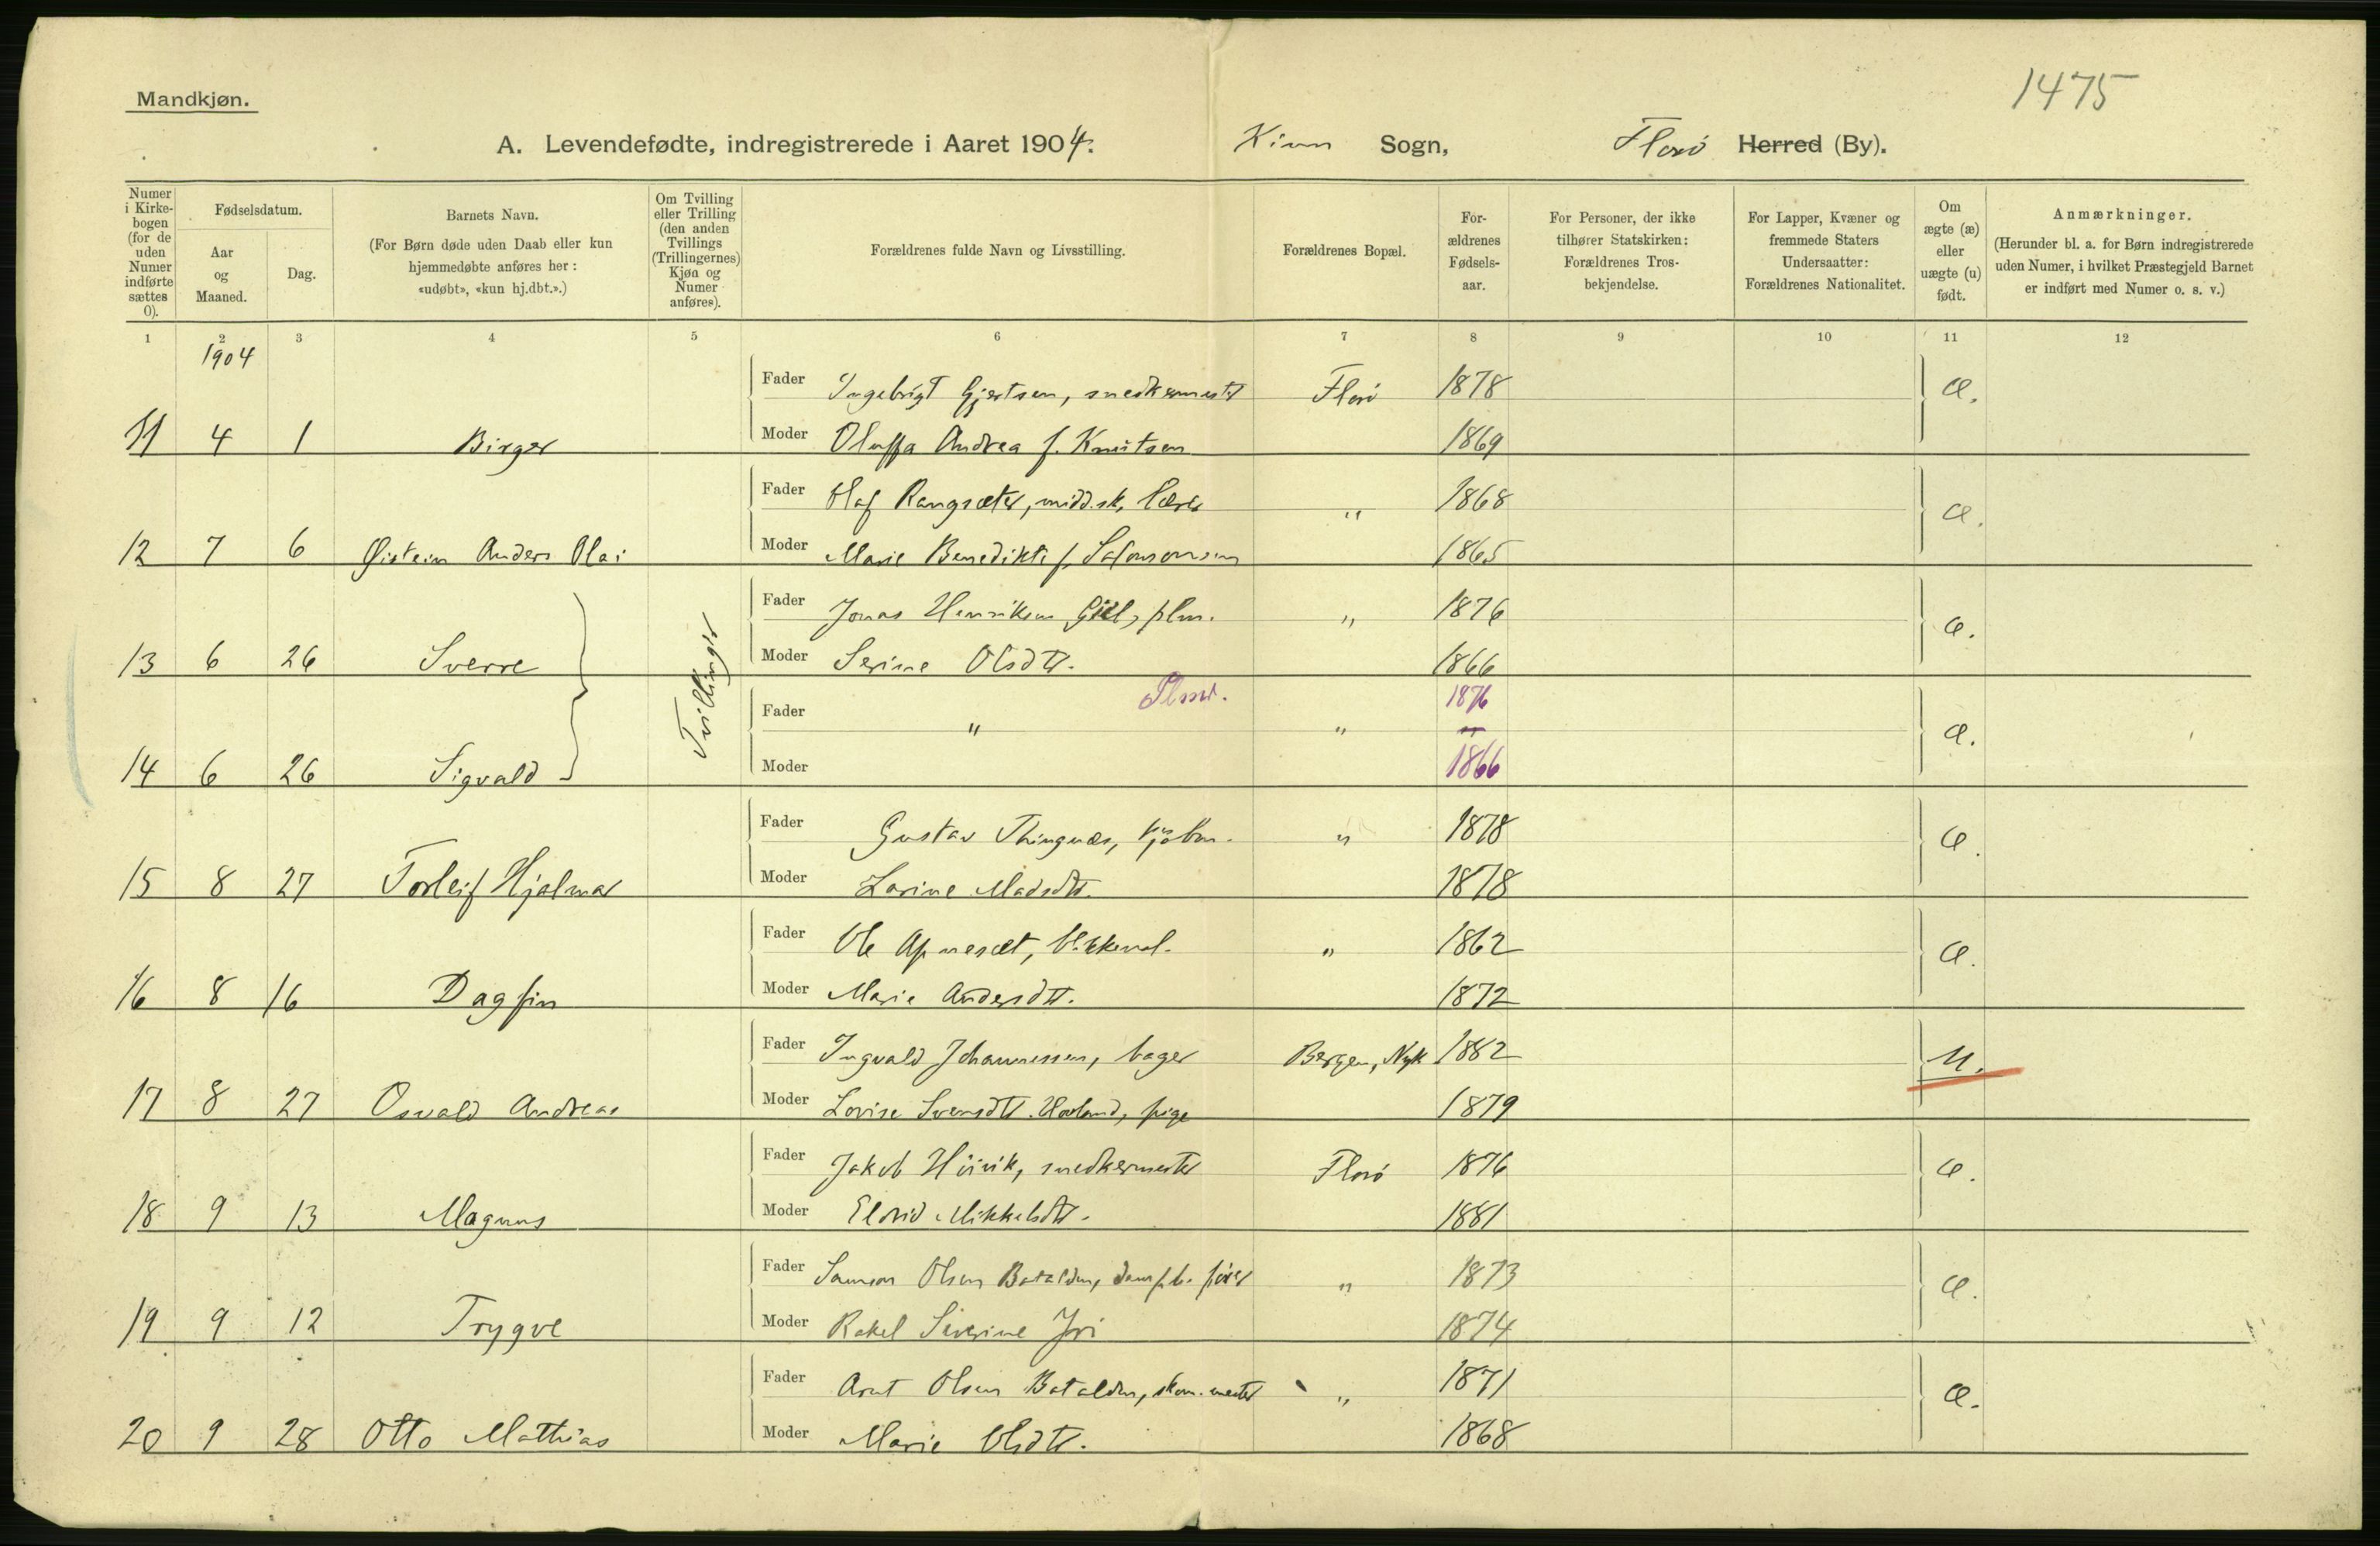 Mandkjøn.
1475
A. Levendefødte, indregistrerede i Aaret 1904. Kinn Sogn, Florø Herred (By).
Numer i Kirkebogen (for de uden Numer indførte sættes 0).
Fødselsdatum.
Aar og Maaned.
Dag.
Barnets Navn.
(For Børn døde uden Daab eller kun hjemmedøbte anføres her: «udøbt», «kun hj.dbt.».)
Om Tvilling eller Trilling (den anden Tvillings (Trillingernes) Kjøn og Numer anføres).
Forældrenes fulde Navn og Livsstilling.
Forældrenes Bopæl.
Forældrenes Fødselsaar.
For Personer, der ikke tilhører Statskirken: Forældrenes Trosbekjendelse.
For Lapper, Kvæner og fremmede Staters Undersaatter: Forældrenes Nationalitet.
Om ægte (æ) eller uægte (u) født.
Anmærkninger.
(Herunder bl. a. for Børn indregistrerede uden Numer, i hvilket Præstegjeld Barnet er indført med Numer o. s. v.)
1 2 3 4 5 6 7 8 9 10 11 12
1904
Fader Ingebrigt Gjertsen, snedkermester Florø 1878 æ.
11 4 1 Birger Moder Oluffa Andrea f. Knutsen 1869
Fader Olaf Rangsæter, midd.sk. lærer " 1868 æ.
12 7 6 Øistein Anders Olai Moder Marie Benedikte f. 1865
Fader Jonas Henriksen " 1876 æ.
13 6 26 Sverre Tvillinger Moder Serine Olsdtr. 1866
Fader " " 1876 æ.
14 6 26 Sigvald Moder 1866
Fader Gustav Thingnæs, kjøbm. " 1878 æ.
15 8 27 Torleif Hjalmar Moder Larine Madsdtr. 1878
Fader Ole Apnesæt, " 1862 æ.
16 8 16 Dagfin Moder Marie Andersdtr. 1872
Fader Ingvald Johannessen, bager Bergen, Nyk 1882 u.
17 8 27 Osvald Andreas Moder Lovise Svensdtr. Hovland, pige 1879
Fader Jakob Høivik, snedkermester Florø 1876 æ.
18 9 13 Magnus Moder Mikkelsdtr. 1881
Fader Samson Olsen Batalden, dampb. fører " 1873 æ.
19 9 12 Trygve Moder Rakel Severine 1874
Fader Arnt Olsen Batalden, skom.mester " 1871 æ.
20 9 28 Otto Mathias Moder Marie Olsdtr. 1868